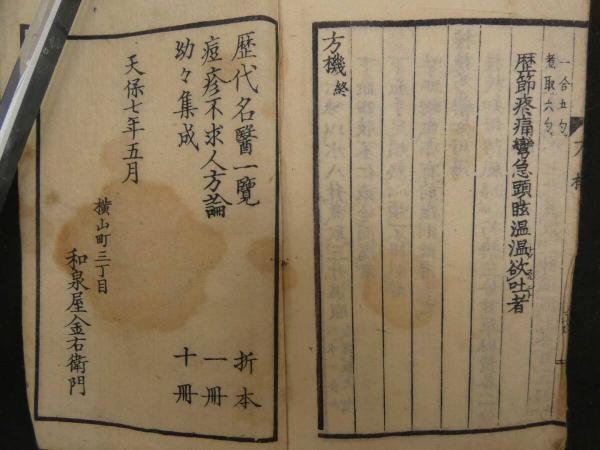 一合五勺
煮取六勺
歴節疼痛攣急頭眩温温欲吐者
方機終
方機
歴代名醫一覧 折本
痘疹不求人方論 一冊
幼々集成 十冊
天保七年五月
横山町三丁目
和泉屋金右衛門